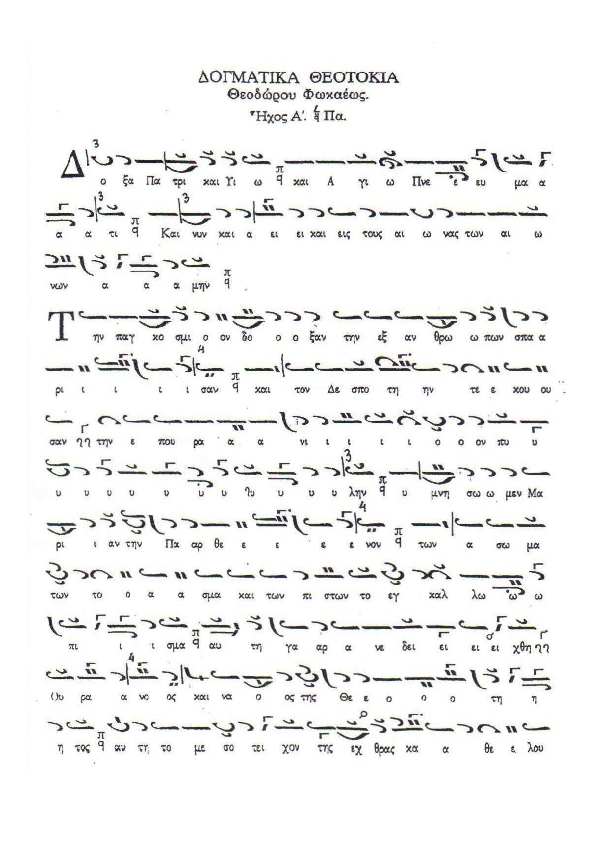 ΔΟΓΜΑΤΙΚΑ ΘΕΟΤΟΚΙΑ
Θεοδώρου Φωκαέως.
Ἦχος Α΄. Πα.
Δ ο ξα Πα τρι και Υι ω και Α γι ω Πνε ε ευ μα α
α α τι Και νυν και α ει ει και εις τους αι ω νας των αι ω
νων α α α μην
Τ ην παγ κο σμι ο ον δο ο ο ξαν την εξ αν θρω ω πων σπα α
ρι ι ι ι ι σαν και τον Δε σπο τη ην τε ε κου ου
σαν την ε που ρα α α νι ι ι ι ι ο ο ον πυ υ
υ υ υ υ υ υ υ υ υ υ υ λην υ μνη σω ω μεν Μα
ρι ι αν την Πα αρ θε ε ε ε ε νον των α σω μα
των το ο α α σμα και των πι στων το εγ καλ λω ω ω
πι ι ι σμα αυ τη γα αρ α νε δει ει ει ει χθη
Ου ρα α νο ος και να ο ος της Θε ε ο ο ο τη η
η τος αν τη το με σο τει χον της εχ θρας κα α θε ε λου